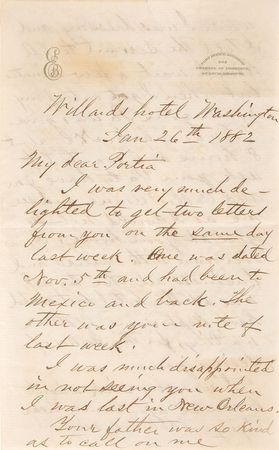 Willards hotel Washington
Jan 26th 1882
My dear Portia
I was very much de-
lighted to get two letters
from you on the same day
last week. One was dated
Nov. 5th and had been to
Mexico and back. The
other was your note of
last week.
I was much disappointed
in not seeing you when
I was last in New Orleans.
Your father was so kind
as to call on me